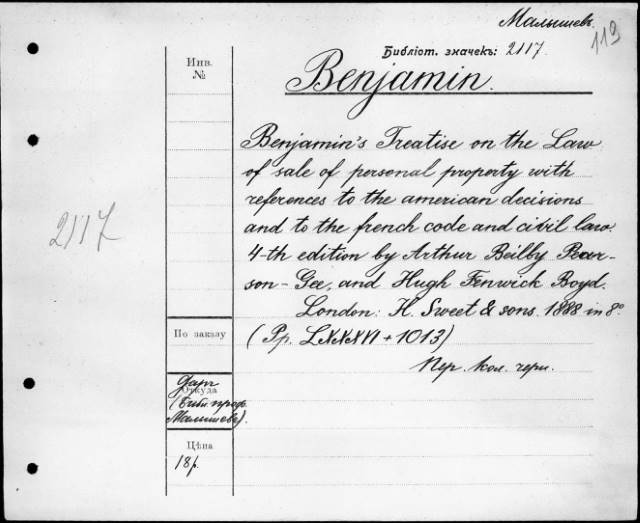 Малышевъ.
119
Библіот. значекъ: 2117.
Инв.
№
Benjamin.
Benjamin's Treatise on the Law
of sale of personal property with
references to the american decisions
and to the french code and civil law.
4-th edition by Arthur Beilby Pear-
son-Gee, and Hugh Fenwick Boyd.
London: H. Sweet & sons. 1888 in 8°
(Pp. LXXXVI + 1013)
Пер. кол. черн.
2117
По заказу
Откуда
Даръ
(Библ. проф.
Малышева).
Цѣна
18 р.